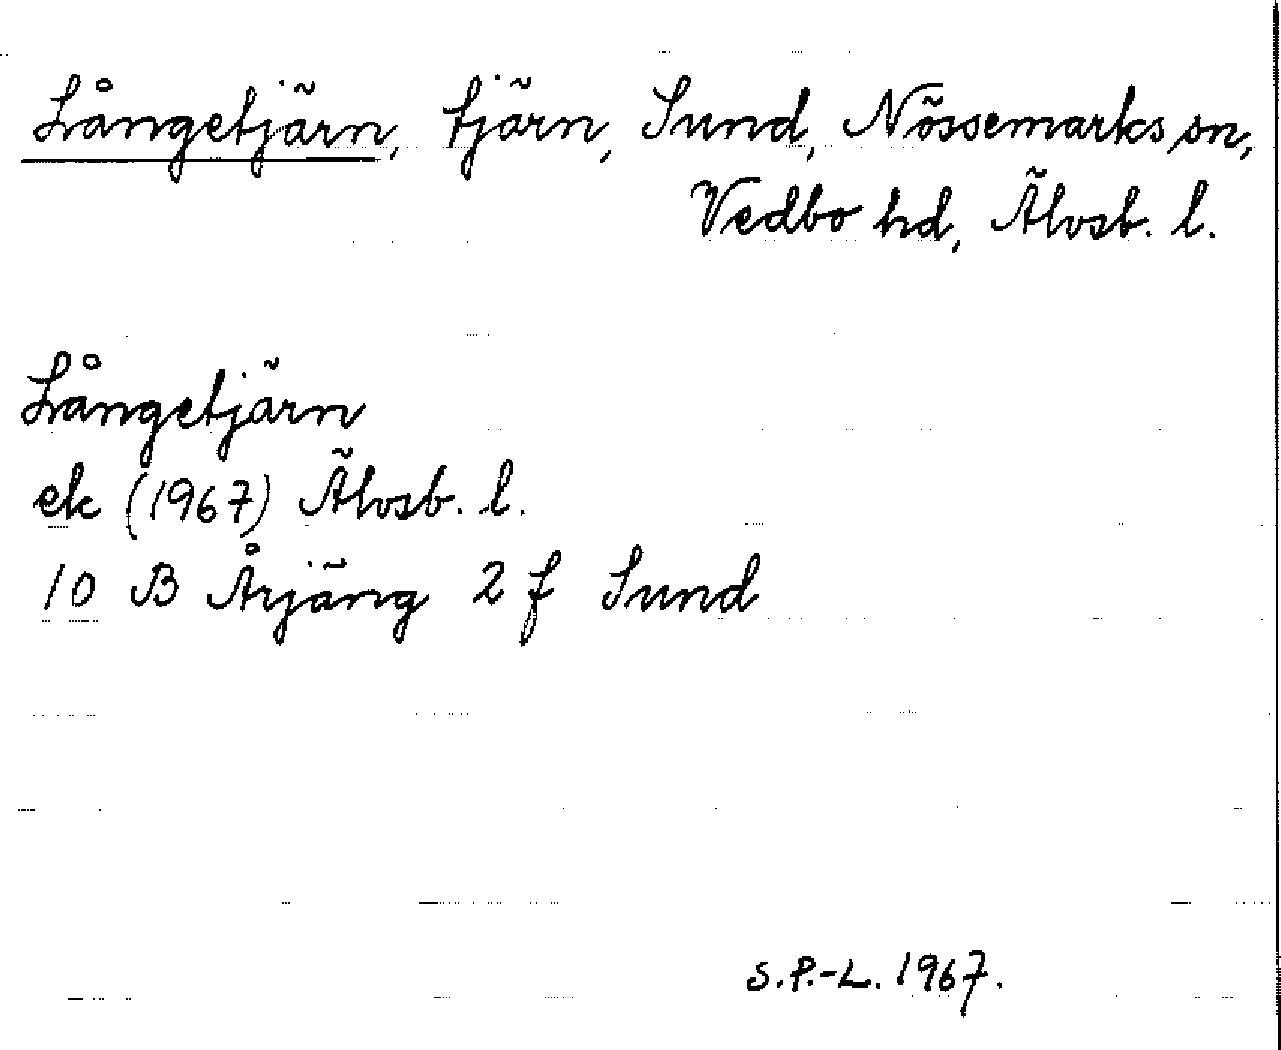 Långetjärn, tjärn, Sund, Nössemarks sn,
Vedbo hd, Älvsb. l.
Långetjärn
ek (1967) Älvsb. l.
10 B Årjäng 2 f Sund
S.P.-L. 1967.